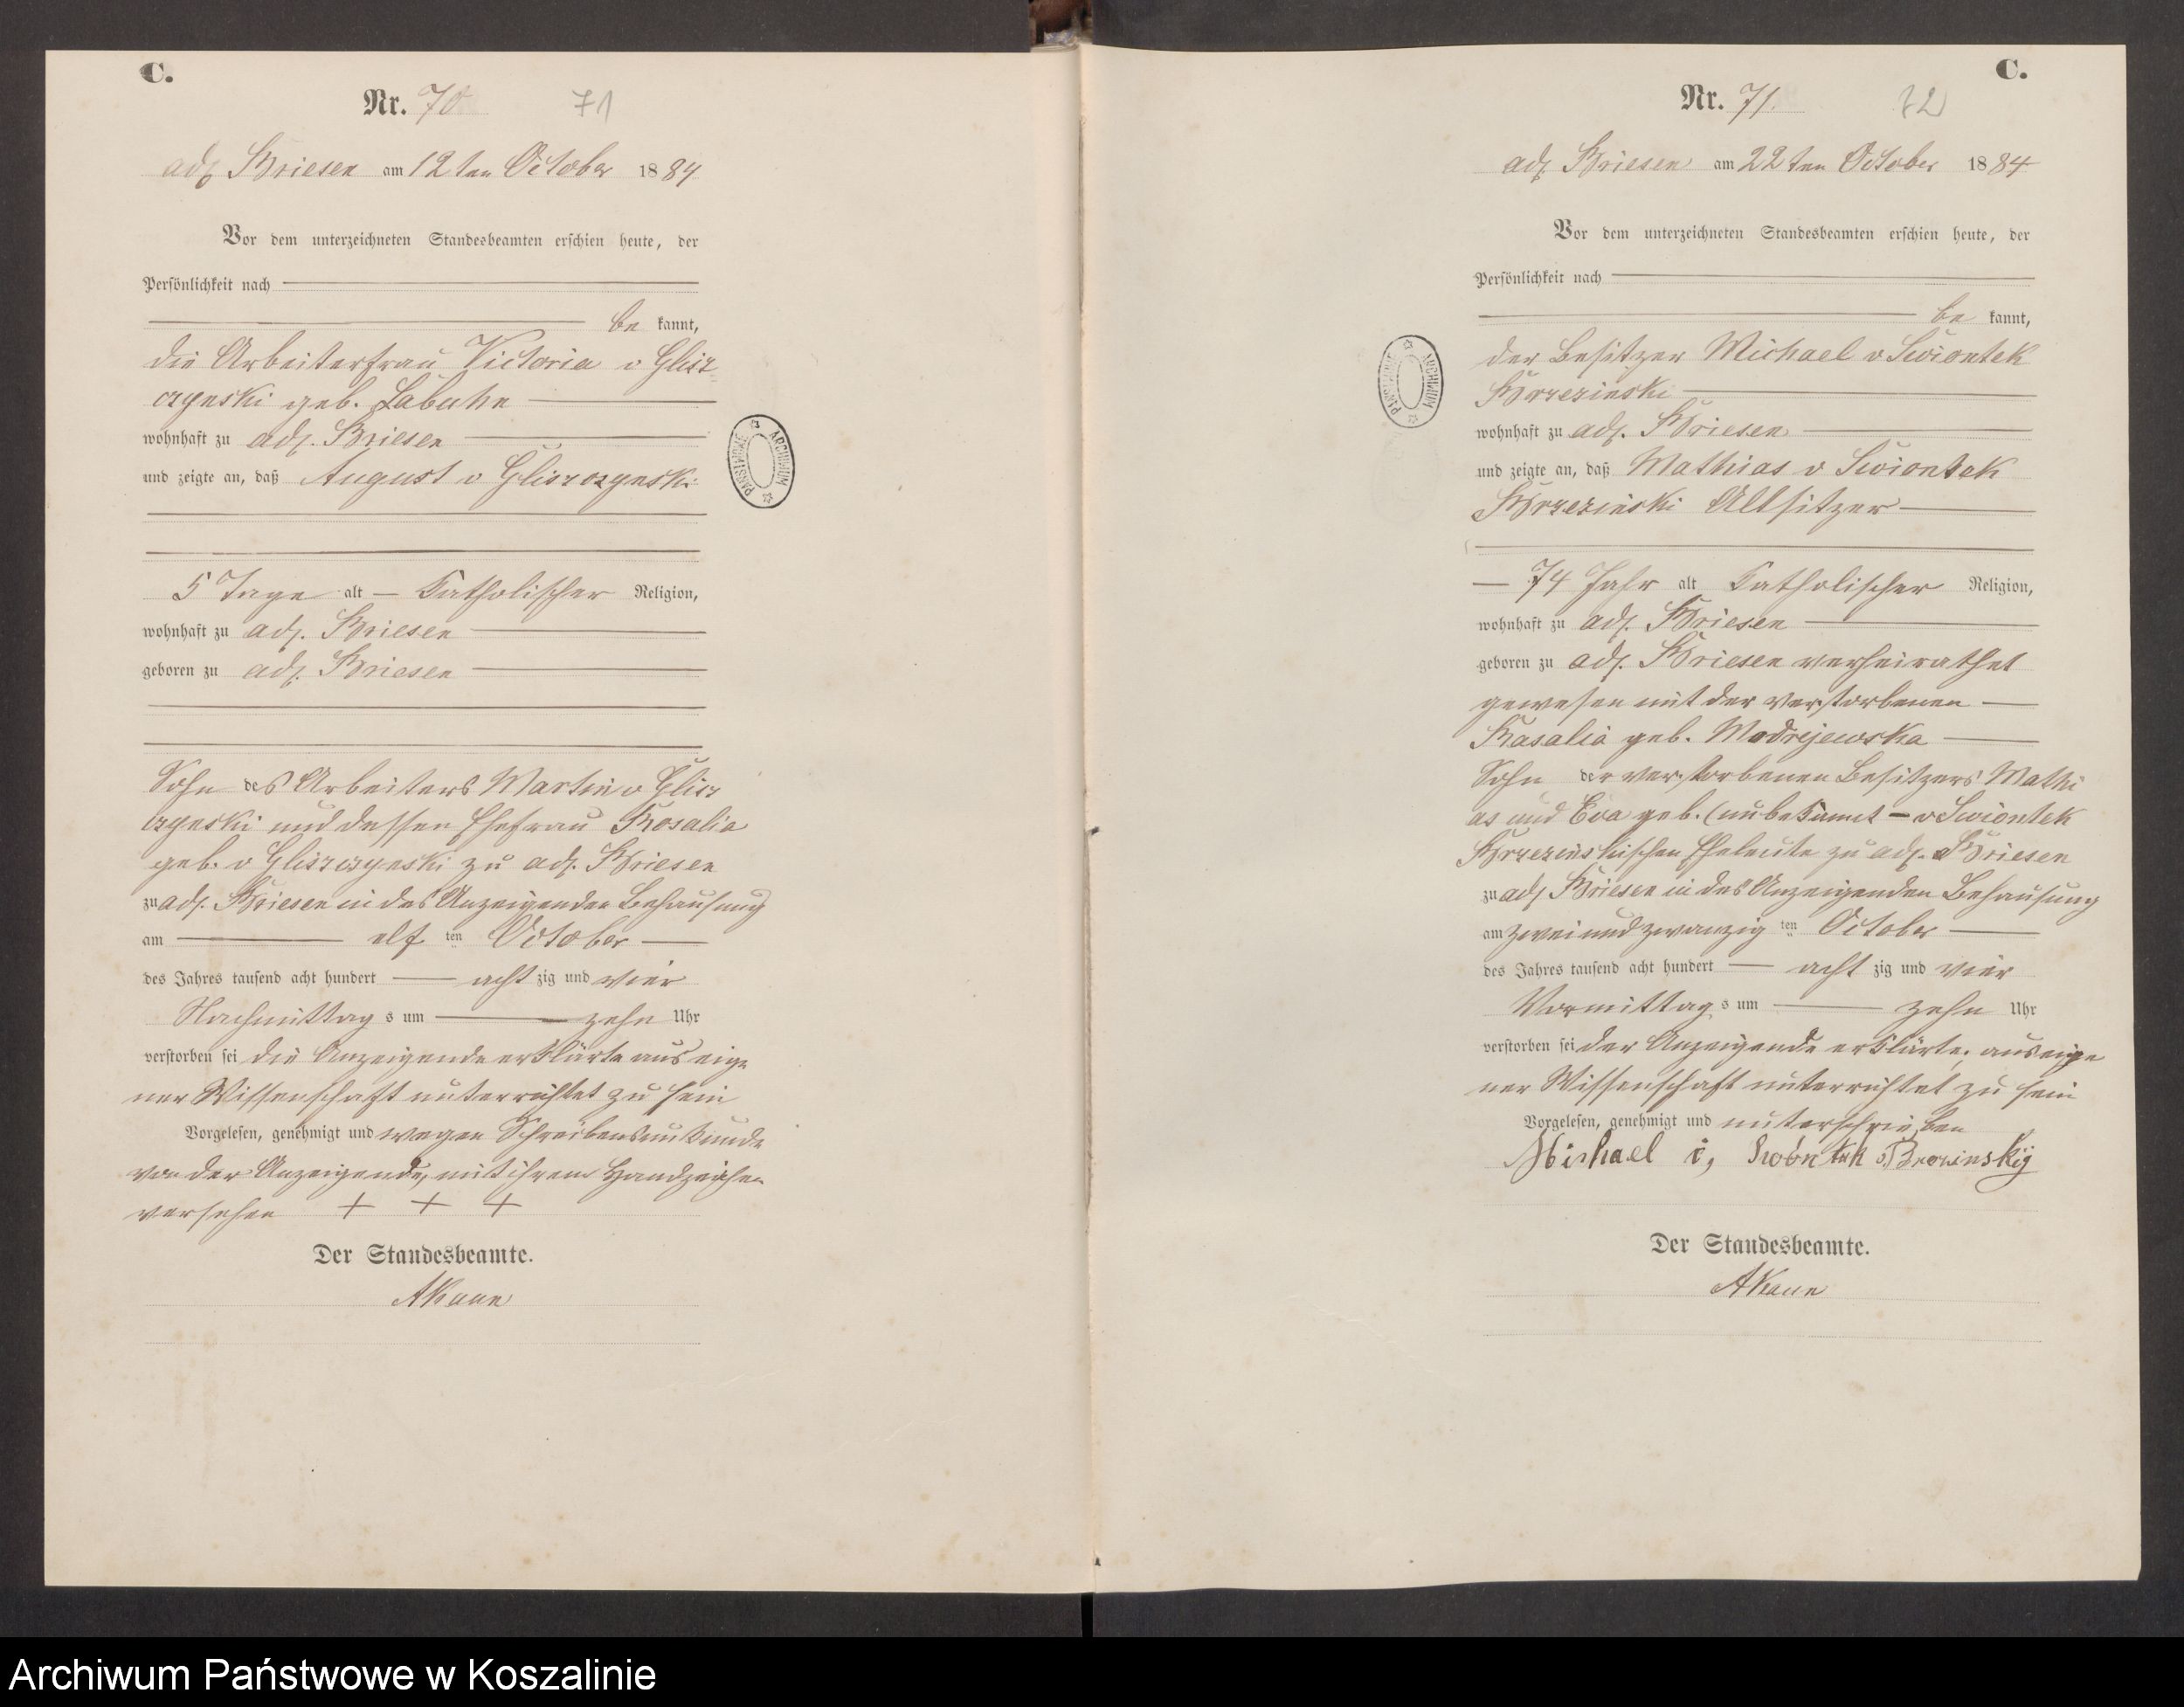 C.
Nr. 70 71
adl. Briesen am 12ten October 1884
Vor dem unterzeichneten Standesbeamten erschien heute, der
Persönlichkeit nach
be kannt,
die Arbeiterfrau Victoria v Glisz
czynski geb. Labuhn
wohnhaft zu adl. Briesen
und zeigte an, daß August v Gliszczynski
5 Tage alt — Katholischer Religion,
wohnhaft zu adl. Briesen
geboren zu adl. Briesen
Sohn des Arbeiters Martin v Glisz
czynski und dessen Ehefrau Rosalia
geb. v Gliszczynski zu adl. Briesen
zu adl. Briesen in des Anzeigenden Behausung
am elf ten October
des Jahres tausend acht hundert acht zig und vier
Nachmittag s um zehn Uhr
verstorben sei die Anzeigende erklärte aus eige
ner Wissenschaft unterrichtet zu sein
Vorgelesen, genehmigt und wegen Schreibensunkunde
von der Anzeigende, mit ihrem Handzeichen
versehen + + +
Der Standesbeamte.
PAŃSTWOWE ARCHIWUM
C.
Nr. 71. 72
adl. Briesen am 22ten October 1884
Vor dem unterzeichneten Standesbeamten erschien heute, der
Persönlichkeit nach
be kannt,
der Besitzer Michael v Swiontek
Brzezinski
wohnhaft zu adl. Briesen
und zeigte an, daß Mathias v Swiontek
Brzezinski Altsitzer
— 74 Jahr alt Katholischer Religion,
wohnhaft zu adl. Briesen
geboren zu adl. Briesen verheirathet
gewesen mit der verstorbenen
Rasalia geb. Modrejewska
Sohn der verstorbenen Besitzers Mathi
as und Eva geb. (unbekannt — v Swiontek
Brzezinskischen Eheleute zu adl. Briesen
zu adl Briesen in des Anzeigenden Behausung
am zweiundzwanzig ten October
des Jahres tausend acht hundert acht zig und vier
Vormittag s um zehn Uhr
verstorben sei der Anzeigende erklärte, aus eige
ner Wissenschaft unterrichtet zu sein
Vorgelesen, genehmigt und unterschrieben
Michael
Der Standesbeamte.
PAŃSTWOWE ARCHIWUM
Archiwum Państwowe w Koszalinie